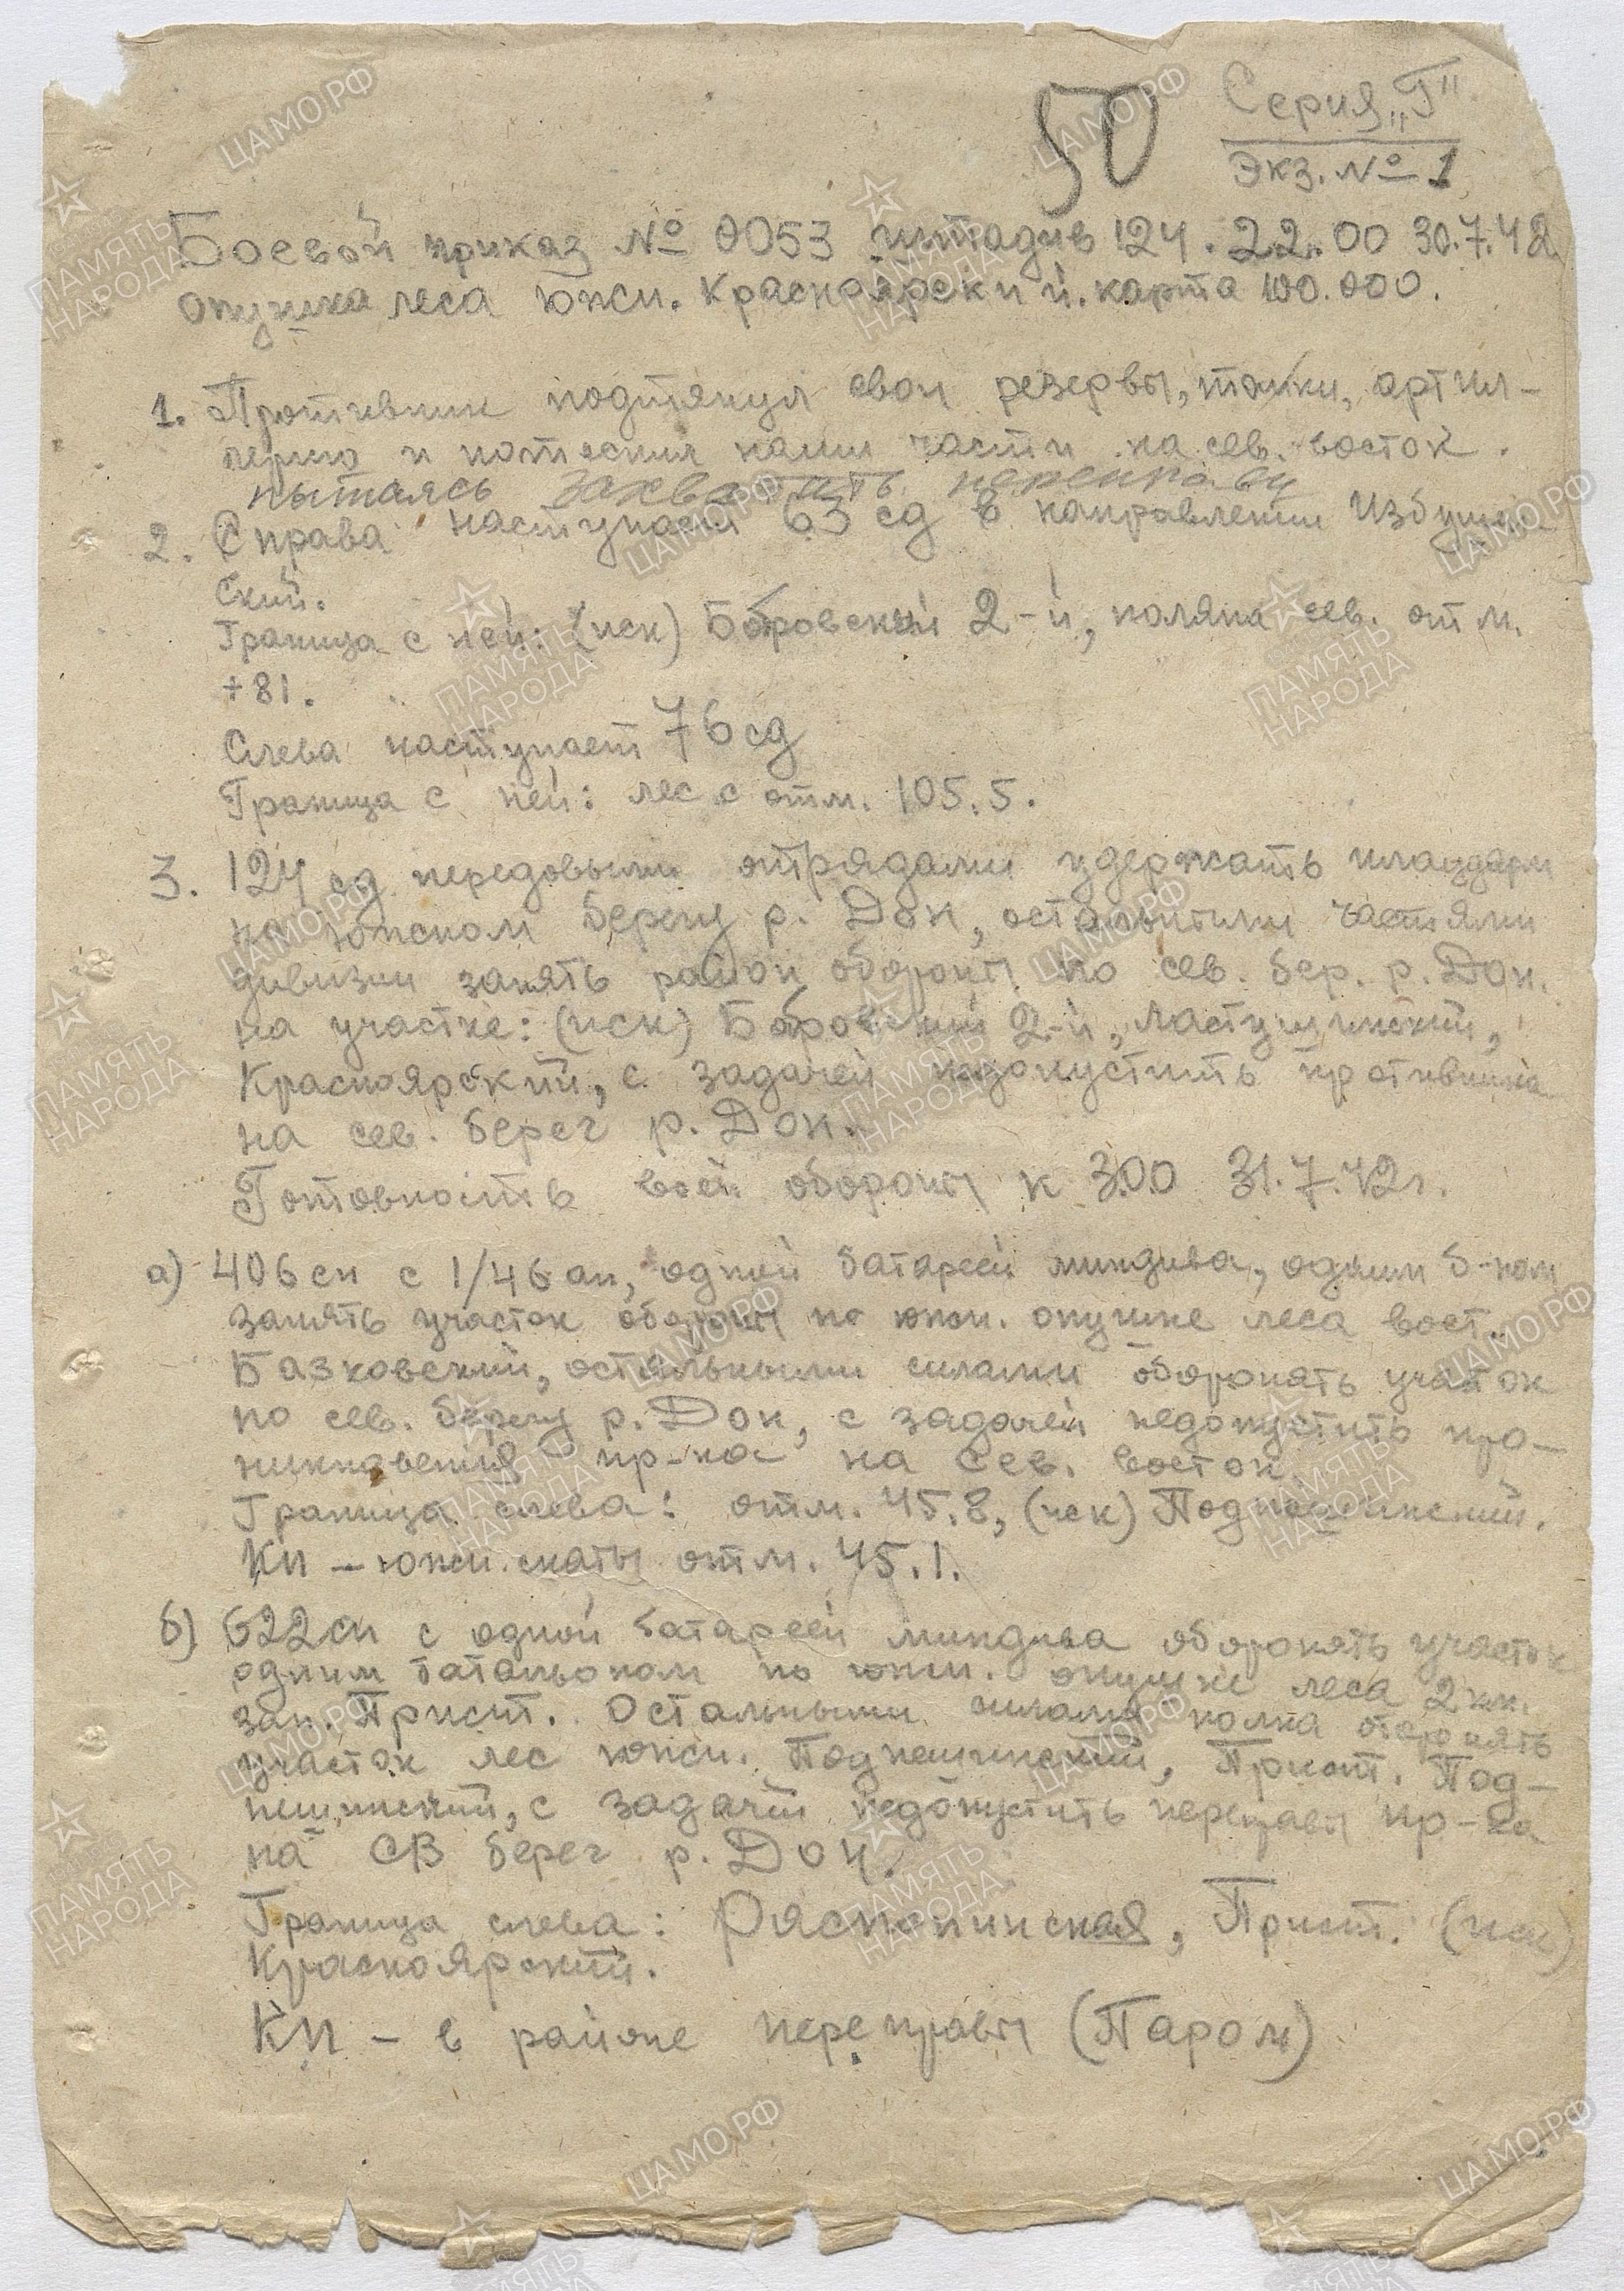 50
Серия „Г"
Экз. № 1
Боевой приказ № 0053 штадив 124. 22.00 30.7.42
опушка леса южн. Красноярский. карта 100.000.
1. Противник подтянул свои резервы, танки, артил-
лерию и потеснил наши части на сев. восток.
пытаясь захватить переправу
2. Справа наступает 63 сд в направлении Избушен-
ский.
Граница с ней: (иск) Бобровский 2-й, поляна сев. отм.
+81.
Слева наступает 76 сд
Граница с ней: лес с отм. 105.5.
3. 124 сд передовыми отрядами удержать плацдарм
на южном берегу р. Дон, остальными частями
дивизии занять район обороны по сев. бер. р. Дон.
на участке: (иск) Бобровский 2-й, Ластушинский,
Красноярский, с задачей недопустить противника
на сев. берег р. Дон.
Готовность всей обороны к 3.00 31.7.42г.
а) 406 сп с 1/46 ап, одной батареей миндива, одним б-ном
занять участок обороны по южн. опушке леса вост.
Базковский, остальными силами оборонять участок
по сев. берегу р. Дон, с задачей недопустить про-
никновения пр-ка на сев. восток.
Граница слева: отм. 45.8, (иск) Подпешинский.
Кп – южн. скаты отм. 45.1.
б) 622 сп с одной батареей миндива оборонять участок
одним батальоном по южн. опушке леса 2 км.
зап. Прист. Остальными силами полка оборонять
участок лес южн. Подпешинский, Прист. Под-
пешинский, с задачей недопустить переправы пр-ка
на СВ берег р. Дон.
Граница слева: Распопинская, Прист. (иск)
Красноярский.
Кп – в районе переправы (Паром)